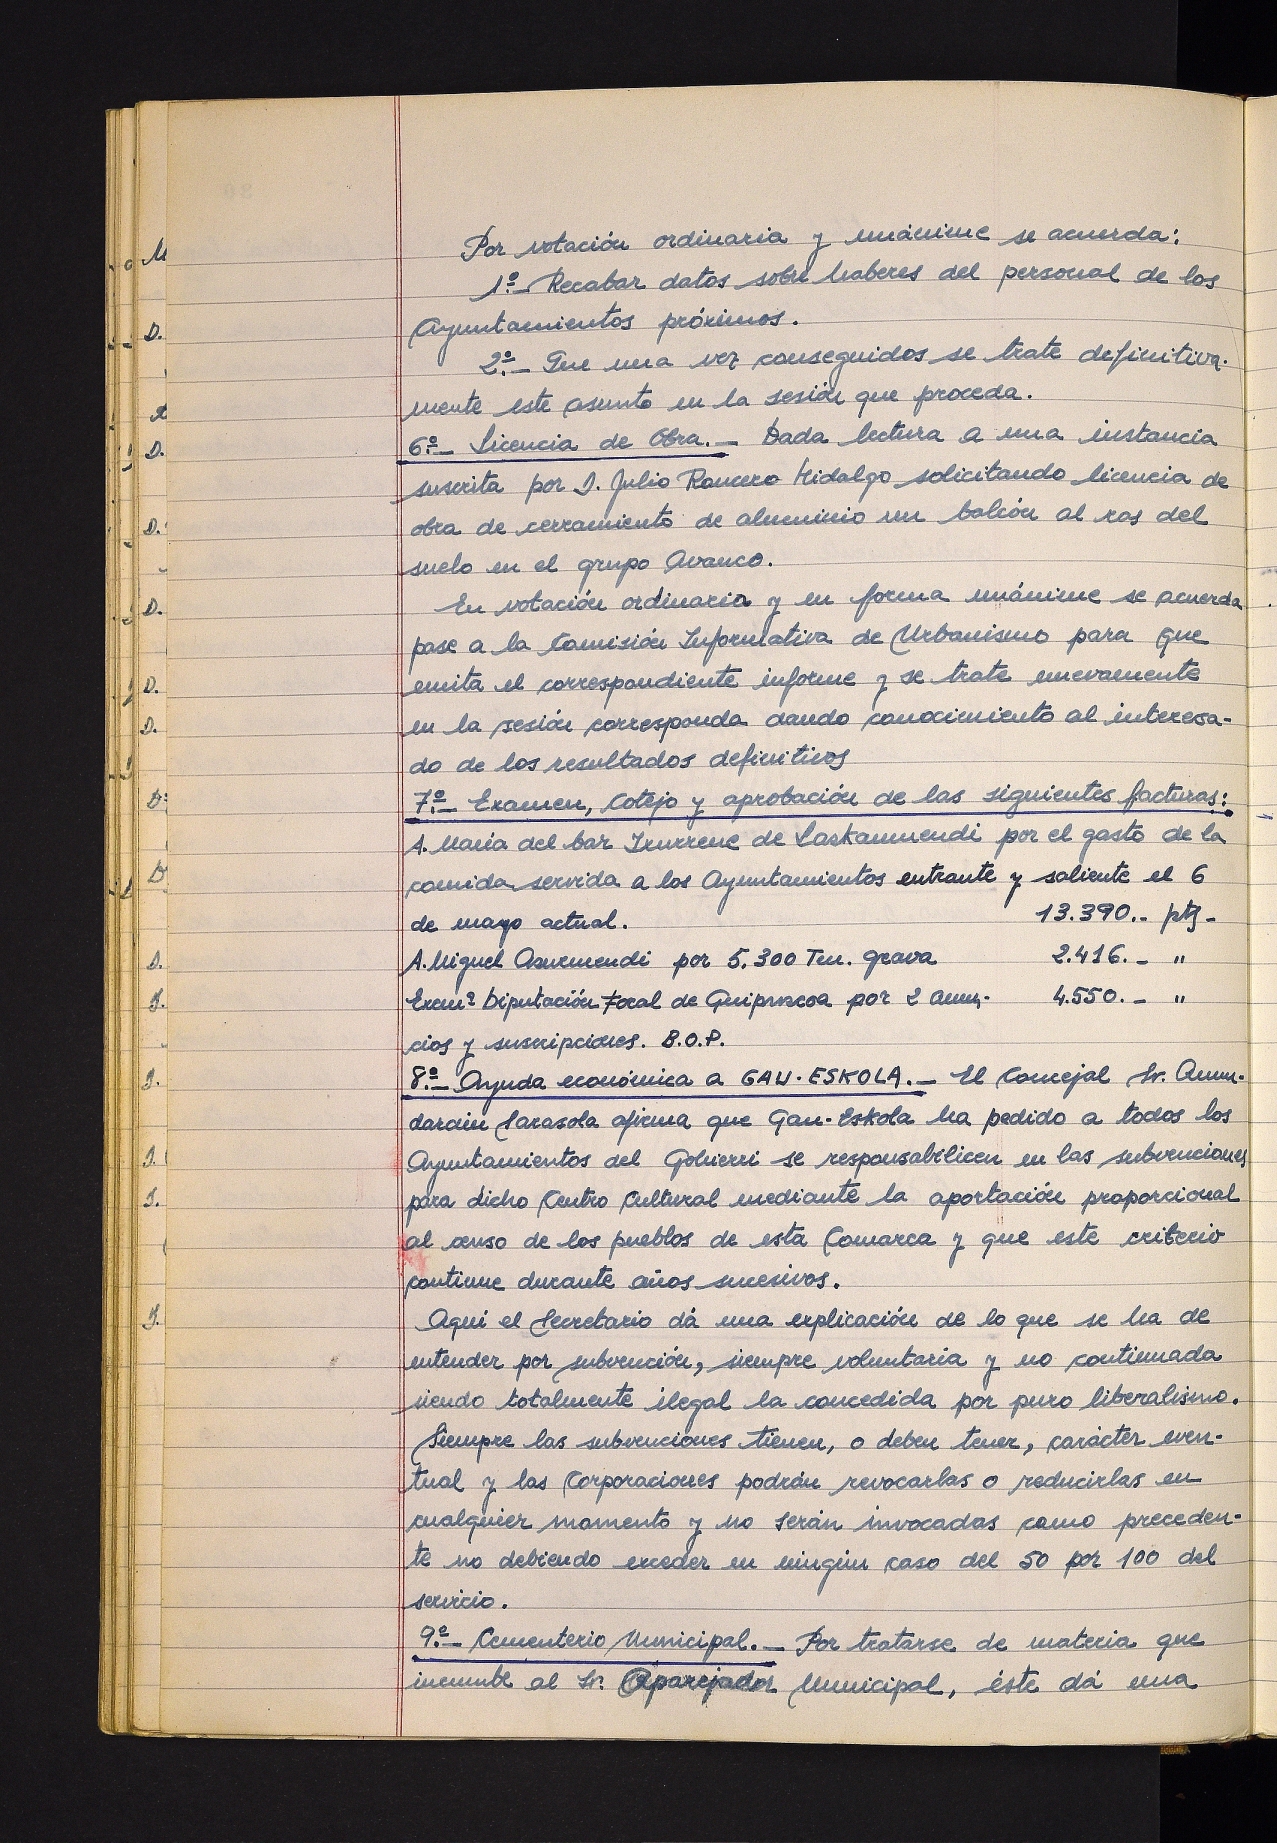 Por votación ordinaria y unánime se acuerda:
1º.- Recabar datos sobre haberes del personal de los
Ayuntamientos próximos.
2º.- Que una vez conseguidos se trate definitiva-
mente este asunto en la sesión que proceda.
6º.- Licencia de Obra.- Dada lectura a una instancia
suscrita por D. Julio Roncero Hidalgo solicitando licencia de
obra de cerramiento de aluminio un balcón al ras del
suelo en el grupo Avanco.
En votación ordinaria y en forma unánime se acuerda
pase a la Comisión Informativa de Urbanismo para que
emita el correspondiente informe y se trate nuevamente
en la sesión corresponda dando conocimiento al interesa-
do de los resultados definitivos
7º.- Examen, Cotejo y aprobación de las siguientes facturas:
A. María del bar de Lazkaumendi por el gasto de la
comida servida a los Ayuntamientos entrante y saliente el 6
de mayo actual. 13.390.- pts-
A. Miguel Asurmendi por 5.300 Tm. grava 2.416.- "
Excmª Diputación Foral de Guipuzcoa por 2 anun- 4.550.- "
cios y suscripciones. B.O.P.
8º.- Ayuda económica a GAU-ESKOLA.- El Concejal Sr. Amun-
darain Sarasola afirma que Gau-Eskola ha pedido a todos los
Ayuntamientos del Gohierri se responsabilicen en las subvenciones
para dicho Centro Cultural mediante la aportación proporcional
al censo de los pueblos de esta Comarca y que este criterio
continue durante años sucesivos.
Aquí el Secretario dá una explicación de lo que se ha de
entender por subvención, siempre voluntaria y no continuada
siendo totalmente ilegal la concedida por puro liberalismo.
Siempre las subvenciones tienen, o deben tener, carácter even-
tual y las Corporaciones podrán revocarlas o reducirlas en
cualquier momento y no serán invocadas como preceden-
te no debiendo exceder en ningún caso del 50 por 100 del
servicio.
9º.- Cementerio Municipal.- Por tratarse de materia que
incumbe al Sr. Aparejador Municipal, éste dá una